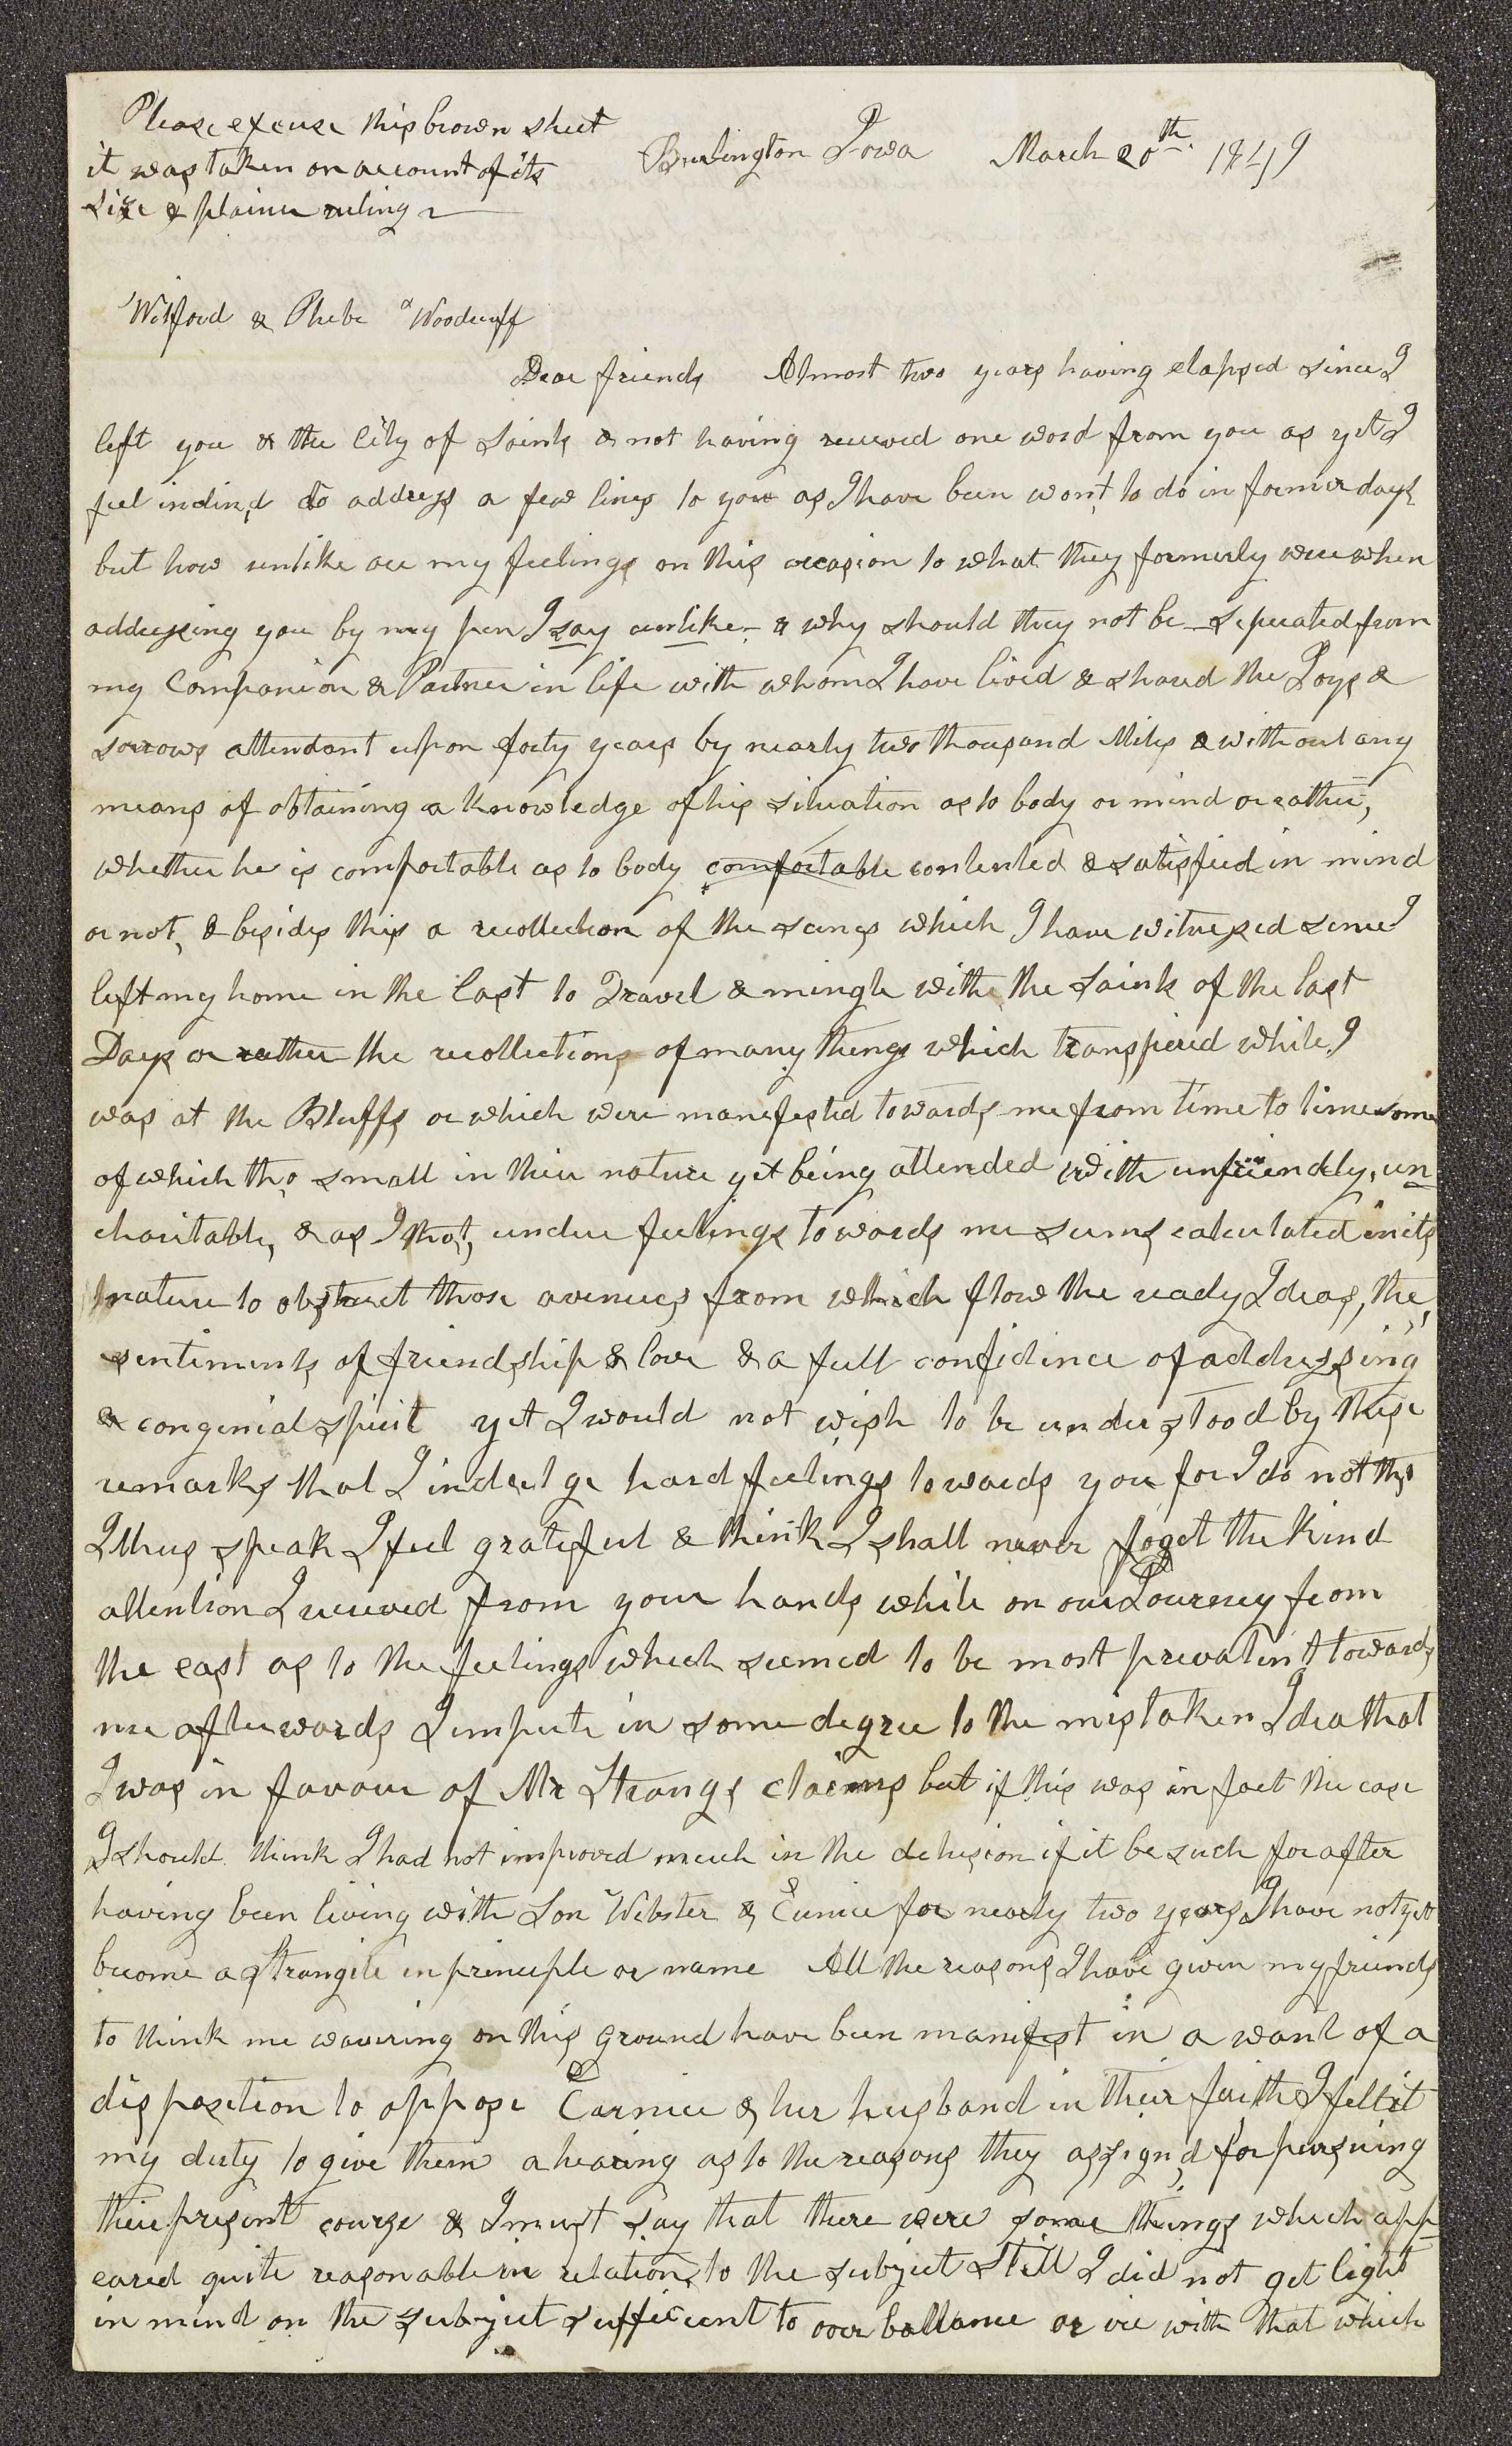 Please excuse this brown sheet
it was taken on account of its
size & plainer ruling
Burlington Iowa March 20th. 1849
Wilford & Phebe Woodruff
Dear friends Almost two years having elapsed since I
left you & the City of Saints & not having received one word from you as yet I
feel inclin,d to address a few lines to you as I have been won,t to do in former days
but how unlike are my feelings on this occasion to what they formerly were when
addressing you by my pen I say unlike - & why should they not be - seperated from
my Companion & Partner in life with whom I have lived & shared the Joys &
sorrows attendant upon forty years by nearly two thousand Miles & without any
means of obtaining a knowledge of his situation as to body or mind or rather,
whether he is comfortable as to body comfortable contented & satisfied in mind
or not, & besides this a recollection of the scenes which I have witnessed since I
left my home in the East to Travel & mingle with the Saints of the last
Days or rather the recollections of many things which transpired while I
was at the Bluffs or which were manefested towards me from time to time some
of which tho small in their nature yet being attended with unfriendly, un
charitable, & as I thot, undue feelings towards me seems calculated in its
nature to obstruct those avenues from which flow the ready Ideas, the,
sentiments of friendship & love & a full confidence of addressing
a congenial spirit yet I would not wish to be understood by these
remarks that I indulge hard feelings towards you for I do not tho
I thus speak I feel grateful & think I shall never foget the kind
attention I received from your hands while on our Journey from
the east as to the feelings which seemed to be most prevalent towards
me afterwards I impute in some degree to the mistaken Idea that
I was in favour of Mr Strangs claims but if this was in fact the case
I should think I had not improved much in the delusion if it be such for after
having been living with Son Webster & Eunice for nearly two years I have not yet
become a Strangite in principle or name All the reasons I have given my friends
to think me wavering on this ground have been manifest in a want of a
disposition to oppose Eurnice & her husband in their faith I felt it
my duty to give them a hearing as to the reasons they assign,d for persuing
their present course & I must say that there were some things which app
eared quite reasonable in relation to the subject still I did not get light
in mind on the subject sufficient to over ballance or vie with that which